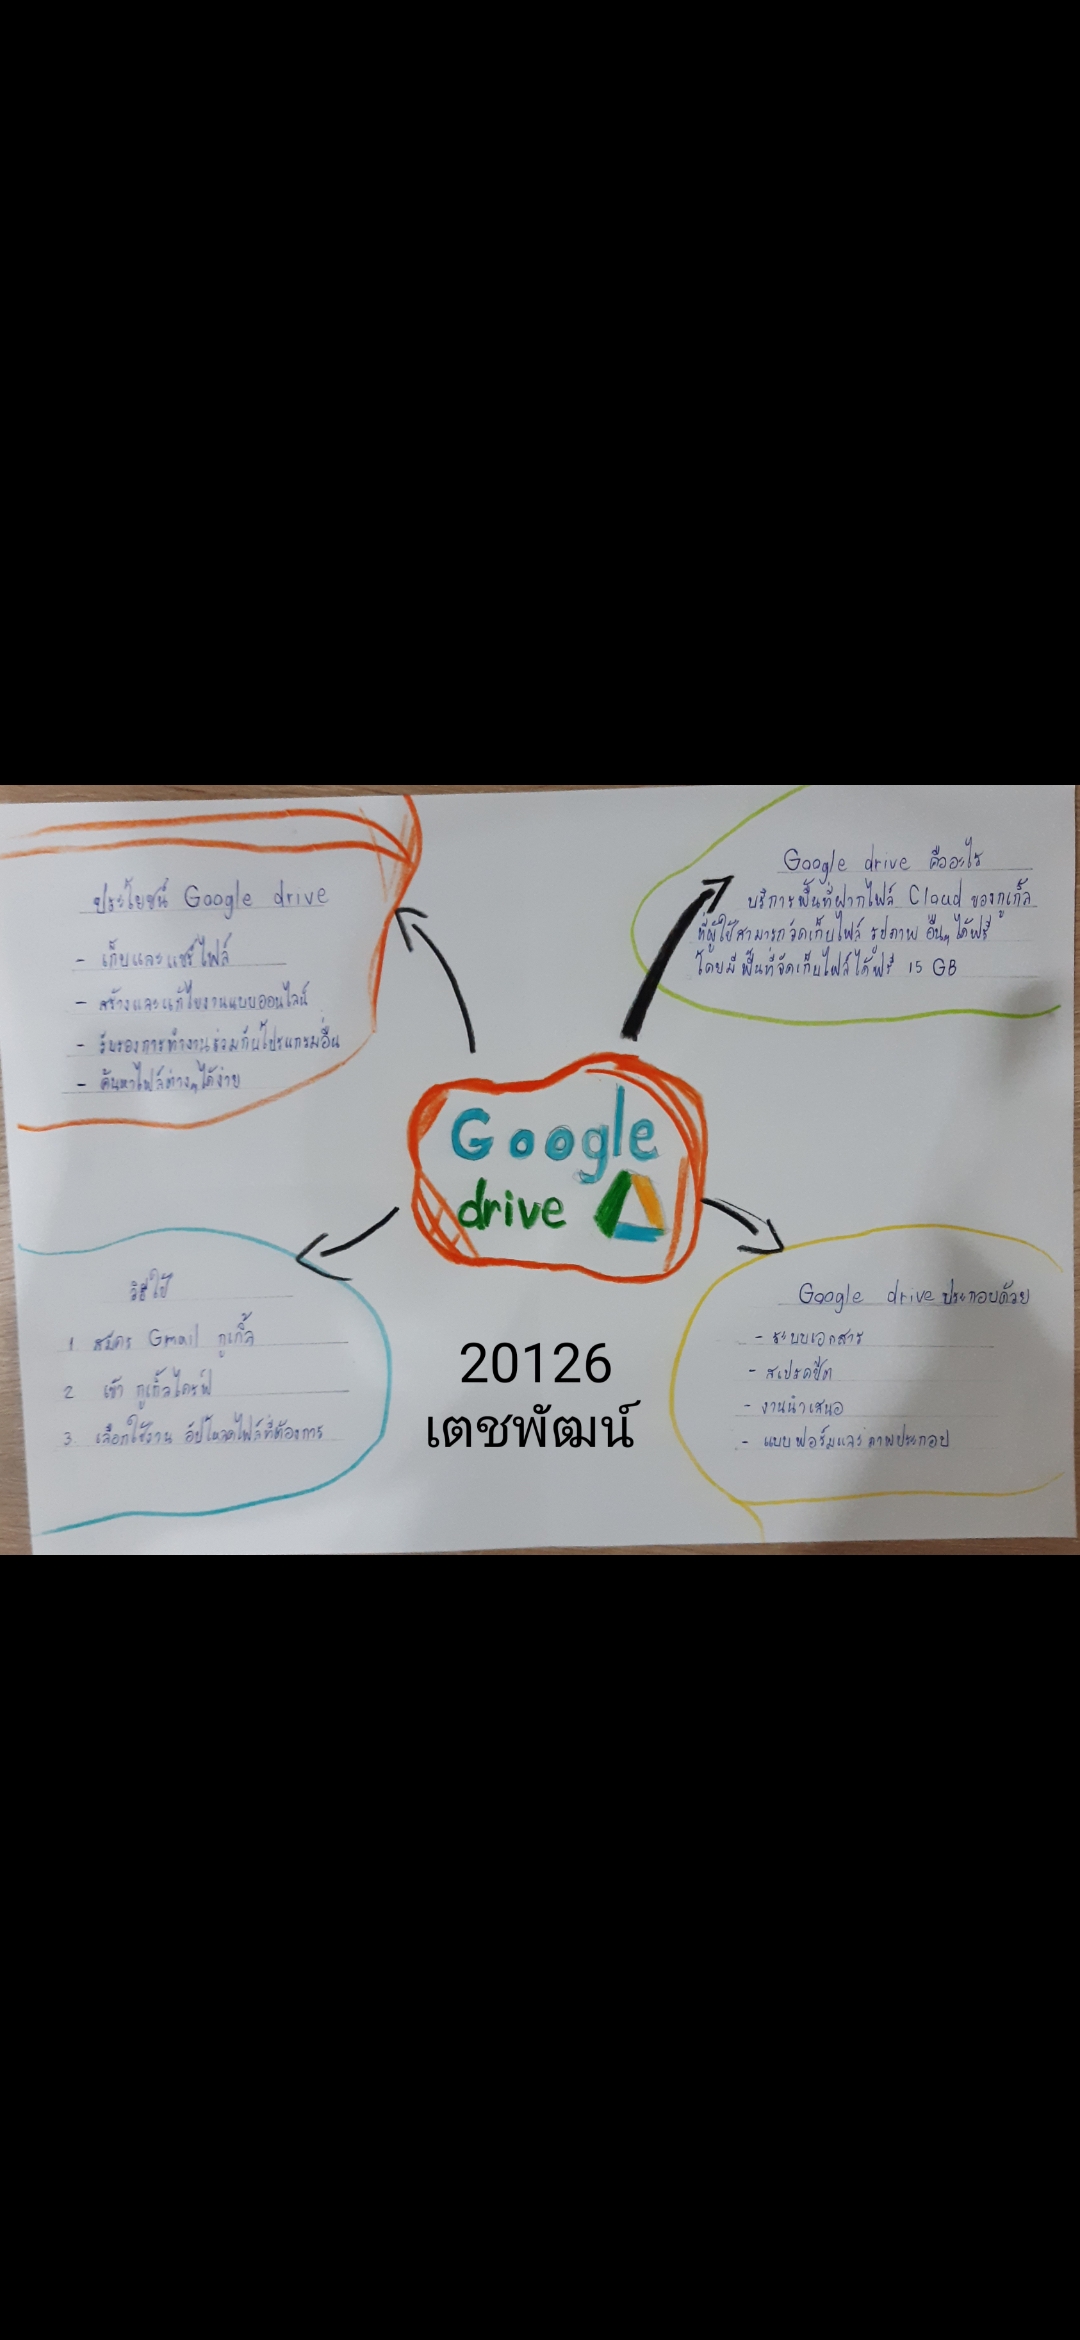 ประโยชน์ Google drive
- เก็บและแชร์ไฟล์
- สร้างและแก้ไขงานแบบออนไลน์
- รับรองการทำงานร่วมกับโปรแกรมอื่น
- ค้นหาไฟล์ต่างๆได้ง่าย
Google drive คืออะไร
บริการพื้นที่ฝากไฟล์ Cloud ของกูเกิ้ล
ที่ผู้ใช้สามารถจัดเก็บไฟล์ รูปภาพ อื่นๆ ได้ฟรี
โดยมี พื้นที่จัดเก็บไฟล์ได้ฟรี 15 GB
Google
drive
วิธีใช้
1 สมัคร Gmail กูเกิ้ล
2 เข้า กูเกิ้ลไดรฟ์
3. เลือกใช้งาน อัปโหลดไฟล์ที่ต้องการ
Google drive ประกอบด้วย
- ระบบเอกสาร
- สเปรดชีต
- งานนำเสนอ
- แบบฟอร์มและ ภาพประกอบ
20126
เตชพัฒน์